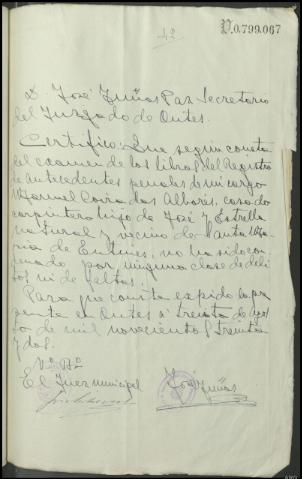 12
V.0.799.067
D. José Tuñas Paz Secretario
del Juzgado de Outes.
Certifico: Que según consta
del examen de los libros del Registro
de antecedentes penales de mi cargo
Manuel das Albores, casado
carpintero hijo de José y Estrella
natural y vecino de Santa Ma
ria de Entines, no ha sido con
denado por ninguna clase de deli
tos ni de faltas.
Para que conste expido la pre
sente en Outes a treinta de
de mil novecientos treinta
y dos.
Vº Bº
El Juez municipal
José Tuñas